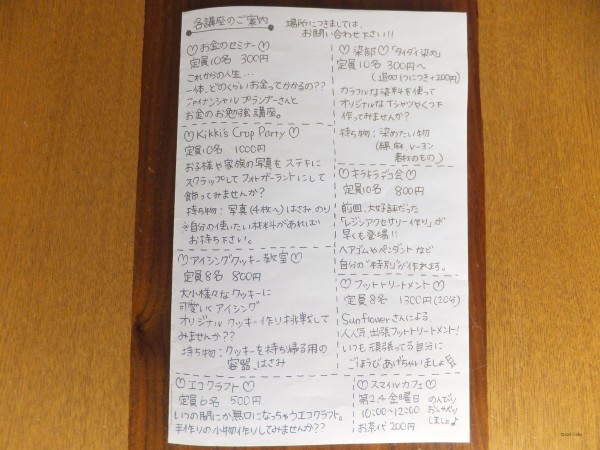 各講座のご案内
場所につきましては、
お問い合わせ下さい!!
♡お金のセミナー♡
定員10名 300円
これからの人生…
一体、どのくらいお金ってかかるの??
ファイナンシャルプランナーさんと
お金のお勉強講座。
♡Kikki's Crop Party♡
定員10名 1000円
お子様や家族の写真をステキに
スクラップしてフォトガーランドにして
飾ってみませんか?
持ち物:写真(4枚〜)はさみ のり
※自分の使いたい材料があれば
お持ち下さい。
♡アイシングクッキー教室♡
定員8名 800円
大小様々なクッキーに
可愛いくアイシング
オリジナルクッキー作り挑戦して
みませんか??
持ち物:クッキーを持ち帰る用の
容器、はさみ
♡エコクラフト♡
定員6名 500円
いつの間にか無口になっちゃうエコクラフト。
手作りの小物作りしてみませんか??
♡染部♡「タイダイ染め」
定員10名 300円〜
(追加1つにつき+200円)
カラフルな染料を使って
オリジナルなTシャツやくつ下
作ってみませんか?
持ち物:染めたい物
(綿、麻、レーヨン
素材のもの)
♡キラキラデコ会♡
定員10名 800円
前回、大好評だった
「レジンアクセサリー作り」が
早くも登場!!
ヘアゴムやペンダントなど
自分の"特別"が作れます。
♡フットトリートメント♡
定員8名 1300円(20分)
Sunflowerさんによる
人気出張フットトリートメント!
いつも頑張ってる自分に
ごほうびあげちゃいましょ
♡スマイルカフェ♡
第2,4金曜日
10:00〜12:00
お茶代200円
のんびり
おしゃべり
しましょ♪